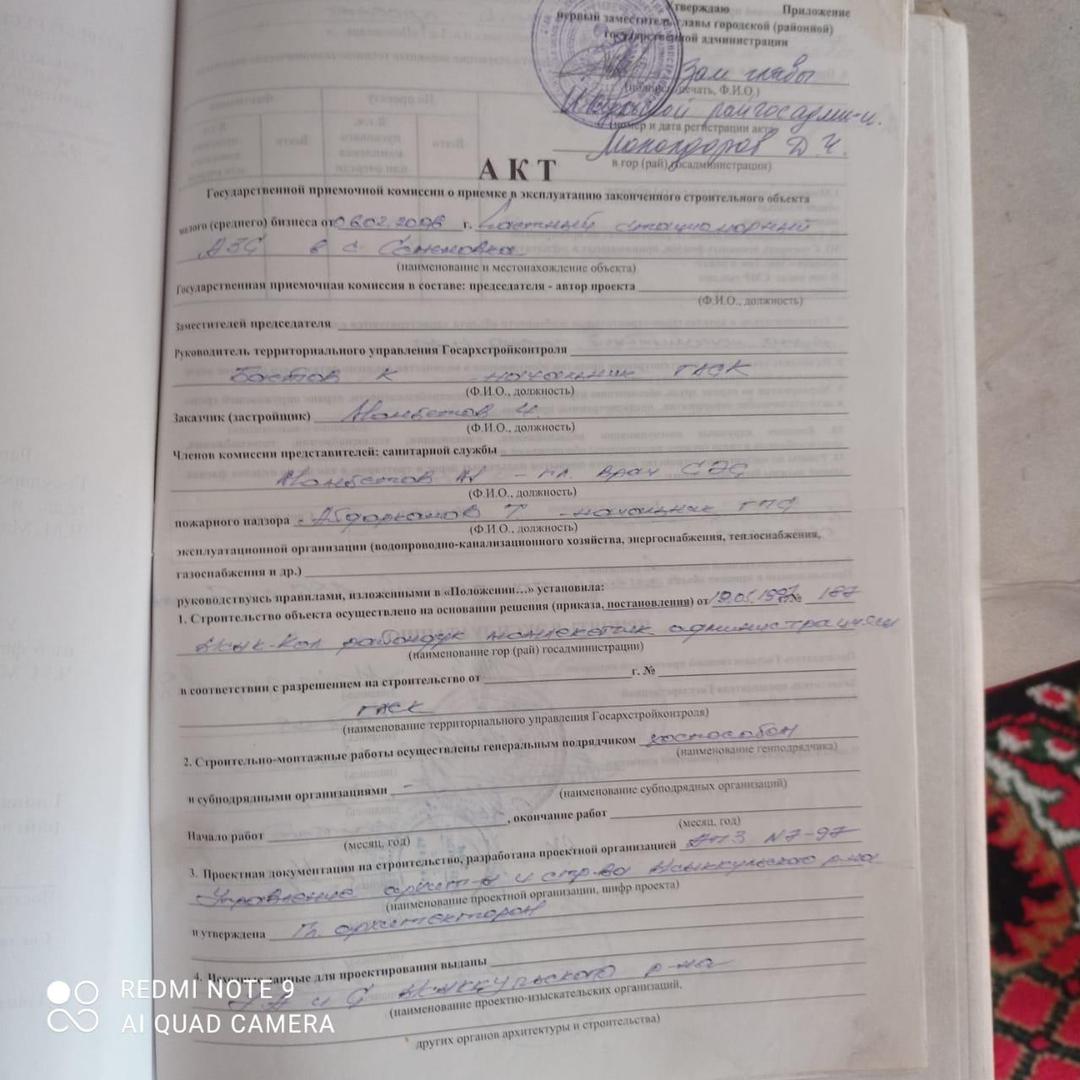 тверждаю Приложение
первый заместитель главы городской (районной)
государственной администрации
Зам главы
(подпись, печать, Ф.И.О.)
райгосадм-и.
(номер и дата регистрации акта
Д.Ч.
в гор (рай) госадминистрации)
АКТ
Государственной приемочной комиссии о приемке в эксплуатацию законченного строительного объекта
малого (среднего) бизнеса от 06.02.2008 г. Частный стационарный
АЗС в с. Семеновка
(наименование и местонахождение объекта)
Государственная приемочная комиссия в составе: председателя - автор проекта
(Ф.И.О., должность)
Заместителей председателя
Руководитель территориального управления Госархстройконтроля
К - начальник ГАСК
(Ф.И.О., должность)
Заказчик (застройщик) Мамбетов
(Ф.И.О., должность)
Членов комиссии представителей: санитарной службы
Мамбетов - гл. врач СЭС
(Ф.И.О., должность)
пожарного надзора - Т - начальник ГПС
(Ф.И.О., должность)
эксплуатационной организации (водопроводно-канализационного хозяйства, энергоснабжения, теплоснабжения,
газоснабжения и др.)
руководствуясь правилами, изложенными в «Положении…» установила:
1. Строительство объекта осуществлено на основании решения (приказа, постановления) от 19.05.1997 № 187
Ысык-Кол райондук мамлекеттик администрациясы
(наименование гор (рай) госадминистрации)
в соответствии с разрешением на строительство от г. №
ГАСК
(наименование территориального управления Госархстройконтроля)
2. Строительно-монтажные работы осуществлены генеральным подрядчиком хозспособом
(наименование генподрядчика)
и субподрядными организациями -
(наименование субподрядных организаций)
Начало работ , окончание работ
(месяц, год) (месяц, год)
3. Проектная документация на строительство, разработана проектной организацией АПЗ N7-97
Управление архит-ы и стр-ва Иссыккульского р-на
(наименование проектной организации, шифр проекта)
и утверждена Гл. архитектором
4. Исходные данные для проектирования выданы
и С Иссыккульского р-на
(наименование проектно-изыскательских организаций,
других органов архитектуры и строительства)
REDMI NOTE 9
AI QUAD CAMERA